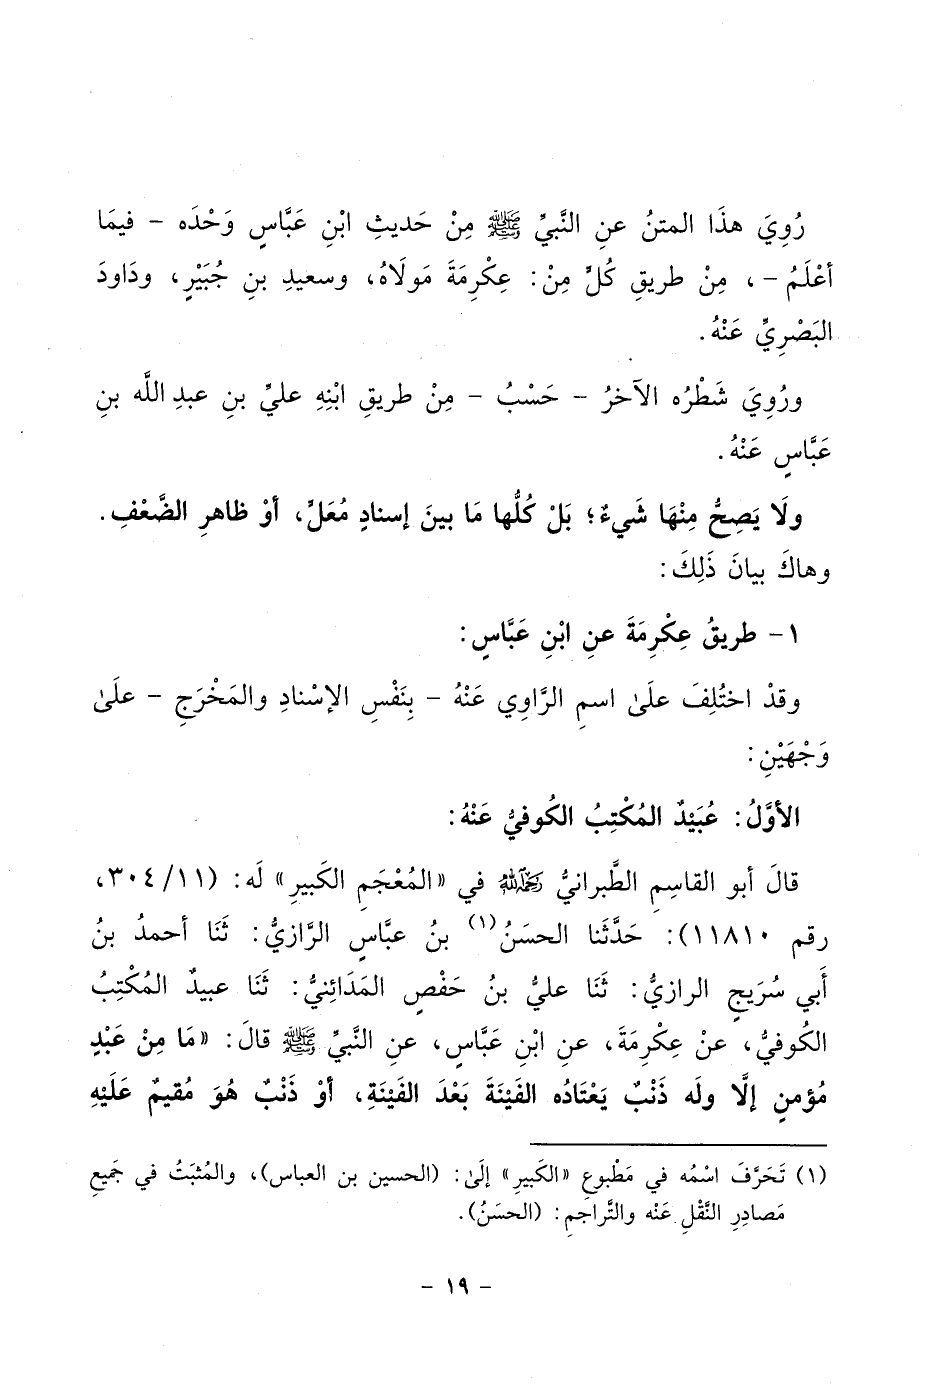 رُوِيَ هذَا المتنُ عنِ النَّبيِّ ﷺ مِنْ حَديثِ ابْنِ عَبَّاسٍ وَحْدَه - فيمَا
أعْلَمُ -، مِنْ طريقِ كُلٍّ مِنْ: عِكْرِمَةَ مَولَاهُ، وسعيدِ بنِ جُبَيْرٍ، ودَاودَ
البَصْرِيِّ عَنْهُ.
ورُوِيَ شَطْرُه الآخرُ - حَسْبُ - مِنْ طريقِ ابْنِهِ عليِّ بنِ عبدِ اللَّه بنِ
عَبَّاسٍ عَنْهُ.
ولَا يَصِحُّ مِنْهَا شَيءٌ؛ بَلْ كُلُّها مَا بينَ إسنادٍ مُعَلٍّ، أوْ ظاهرِ الضَّعْفِ.
وهاكَ بيانَ ذَلِكَ:
١- طريقُ عِكْرِمَةَ عنِ ابْنِ عَبَّاسٍ:
وقدْ اختُلِفَ علَىٰ اسمِ الرَّاوِي عَنْهُ - بِنَفْسِ الإسْنادِ والمَخْرَجِ - علَىٰ
وَجْهَيْنِ:
الأوَّلُ: عُبَيْدٌ المُكْتِبُ الكُوفيُّ عَنْهُ:
قالَ أبو القاسِمِ الطَّبرانيُّ رَحِمَهُ اللهُ في «المُعْجَمِ الكَبيرِ» لَه: (١١/ ٣٠٤،
رقم ١١٨١٠): حَدَّثَنا الحسَنُ(١) بنُ عبَّاسٍ الرَّازيُّ: ثَنَا أحمدُ بنُ
أَبي سُرَيجٍ الرازيُّ: ثَنَا عليُّ بنُ حَفْصٍ المَدَائِنيُّ: ثَنَا عبيدٌ المُكْتِبُ
الكُوفيُّ، عَنْ عِكْرِمَةَ، عنِ ابْنِ عَبَّاسٍ، عنِ النَّبيِّ ﷺ قالَ: «مَا مِنْ عَبْدٍ
مُؤمنٍ إلَّا ولَه ذَنْبٌ يَعْتَادُه الفَيْنَةَ بَعْدَ الفَيْنَةِ، أوْ ذَنْبٌ هُوَ مُقيمٌ عَلَيْهِ
(١) تَحَرَّفَ اسْمُه في مَطْبوعِ «الكَبيرِ» إلَىٰ: (الحسين بن العباس)، والمُثبَتُ في جَميعِ
مَصادِرِ النَّقْلِ عَنْه والتَّراجمِ: (الحسَنُ).
- ١٩ -